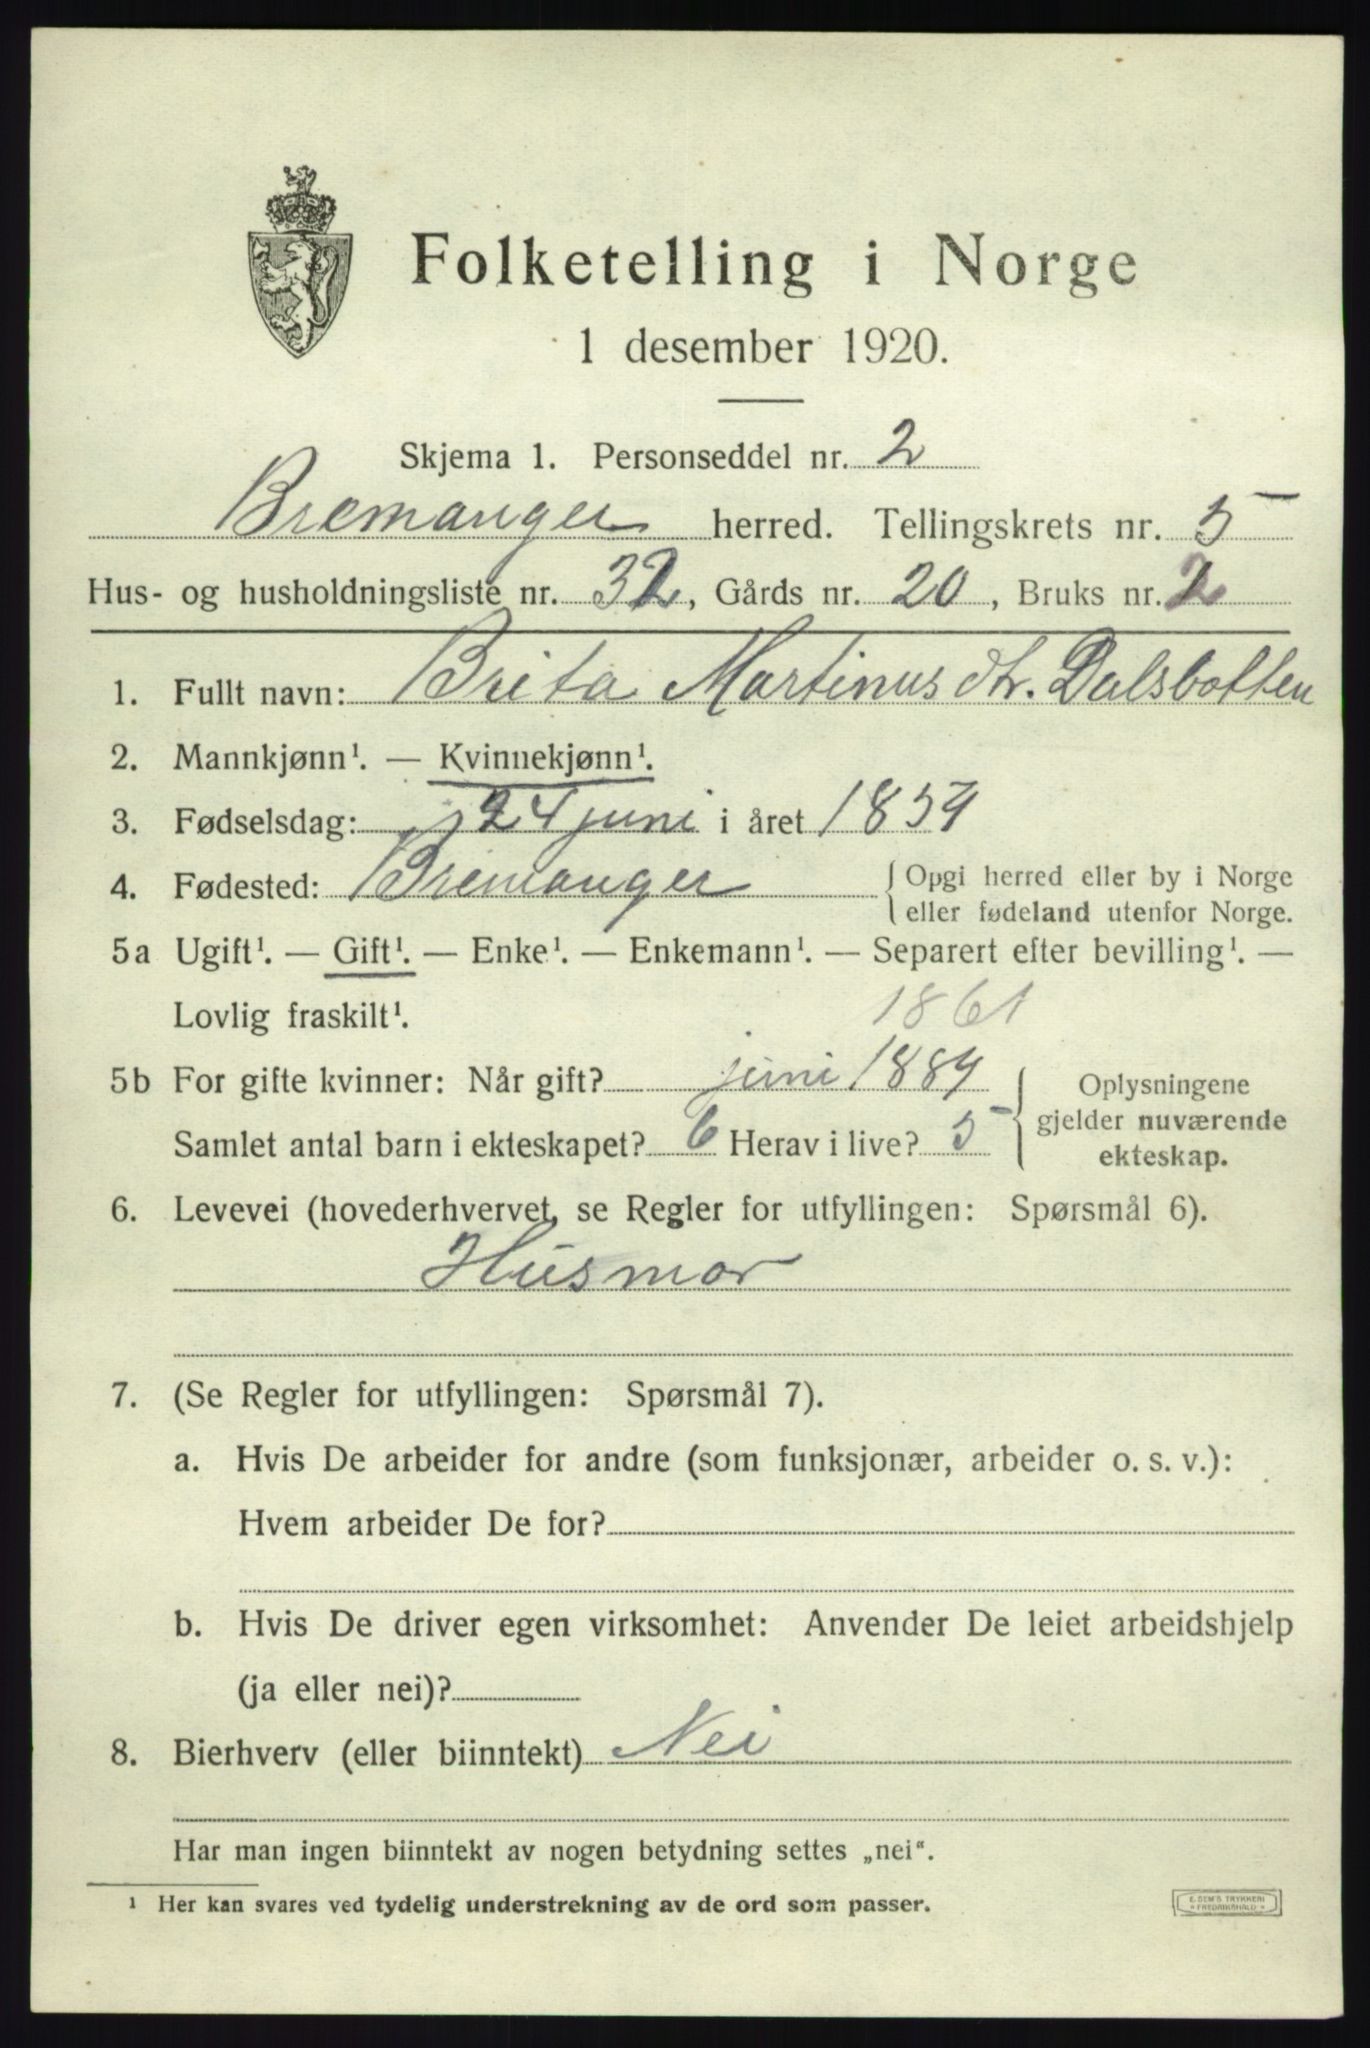 Folketelling i Norge
1 desember 1920.
Skjema 1. Personseddel nr. 2
Bremanger herred. Tellingskrets nr. 5
Hus- og husholdningsliste nr. 32, Gårds nr. 20, Bruks nr. 2
1. Fullt navn: Brita Martinus dtr. Dalsbotten
2. Mannkjønn¹. — Kvinnekjønn¹.
3. Fødselsdag: 24 juni i året 1859
4. Fødested: Bremanger { Opgi herred eller by i Norge
eller fødeland utenfor Norge.
5a Ugift¹. — Gift¹. — Enke¹. — Enkemann¹. — Separert efter bevilling¹. —
Lovlig fraskilt¹.
1861
5b For gifte kvinner: Når gift? juni 1889 { Oplysningene
gjelder nuværende
Samlet antal barn i ekteskapet? 6 Herav i live? 5
ekteskap.
6. Levevei (hovederhvervet, se Regler for utfyllingen: Spørsmål 6).
Husmor
7. (Se Regler for utfyllingen: Spørsmål 7).
a. Hvis De arbeider for andre (som funksjonær, arbeider o. s. v.):
Hvem arbeider De for?
b. Hvis De driver egen virksomhet: Anvender De leiet arbeidshjelp
(ja eller nei)?
8. Bierhverv (eller biinntekt) Nei
Har man ingen biinntekt av nogen betydning settes „nei“.
¹ Her kan svares ved tydelig understrekning av de ord som passer.
E. SEM'S TRYKKERI
* FREDRIKSHALD *